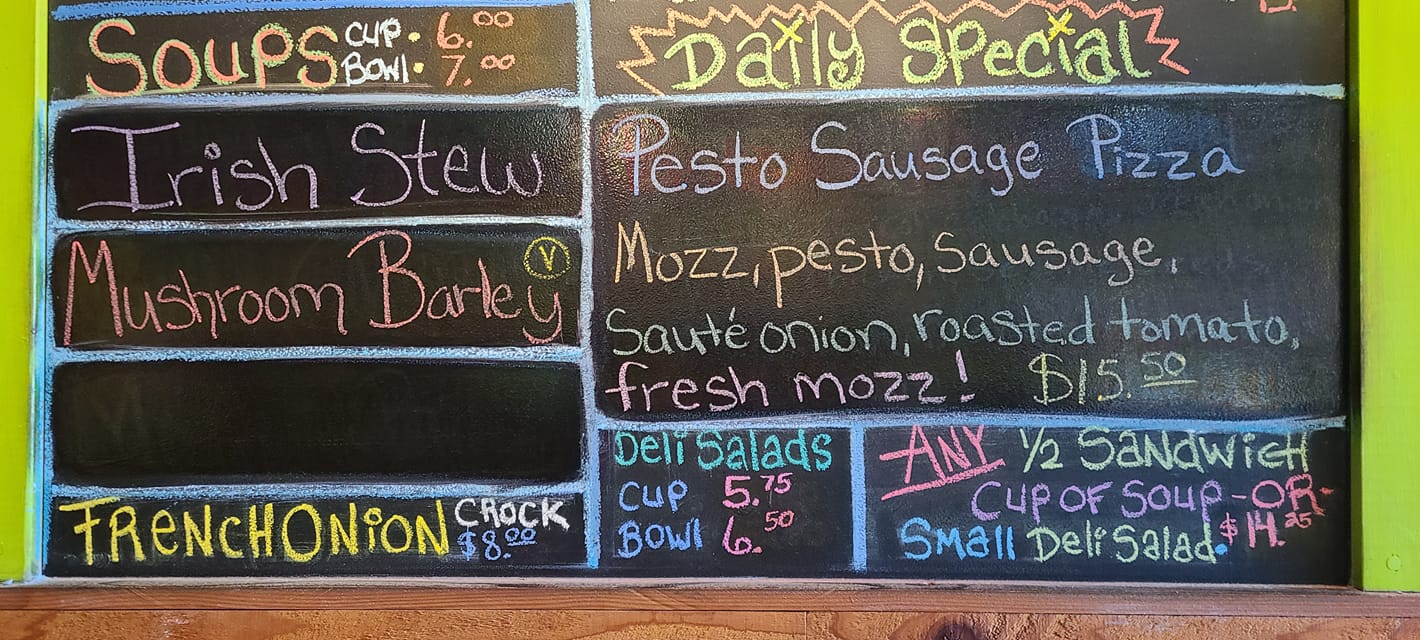 Soups CUP • 6.00
BOWL • 7.00
Irish Stew
Mushroom Barley V
FRENCH ONION CROCK
$8.00
Daily Special
Pesto Sausage Pizza
Mozz, pesto, sausage,
Sauté onion, roasted tomato,
fresh mozz! $15.50
Deli Salads
CUP 5.75
BOWl 6.50
ANY 1/2 SANDWICH
CUP OF SOUP -OR-
SMall Deli Salad. $14.25